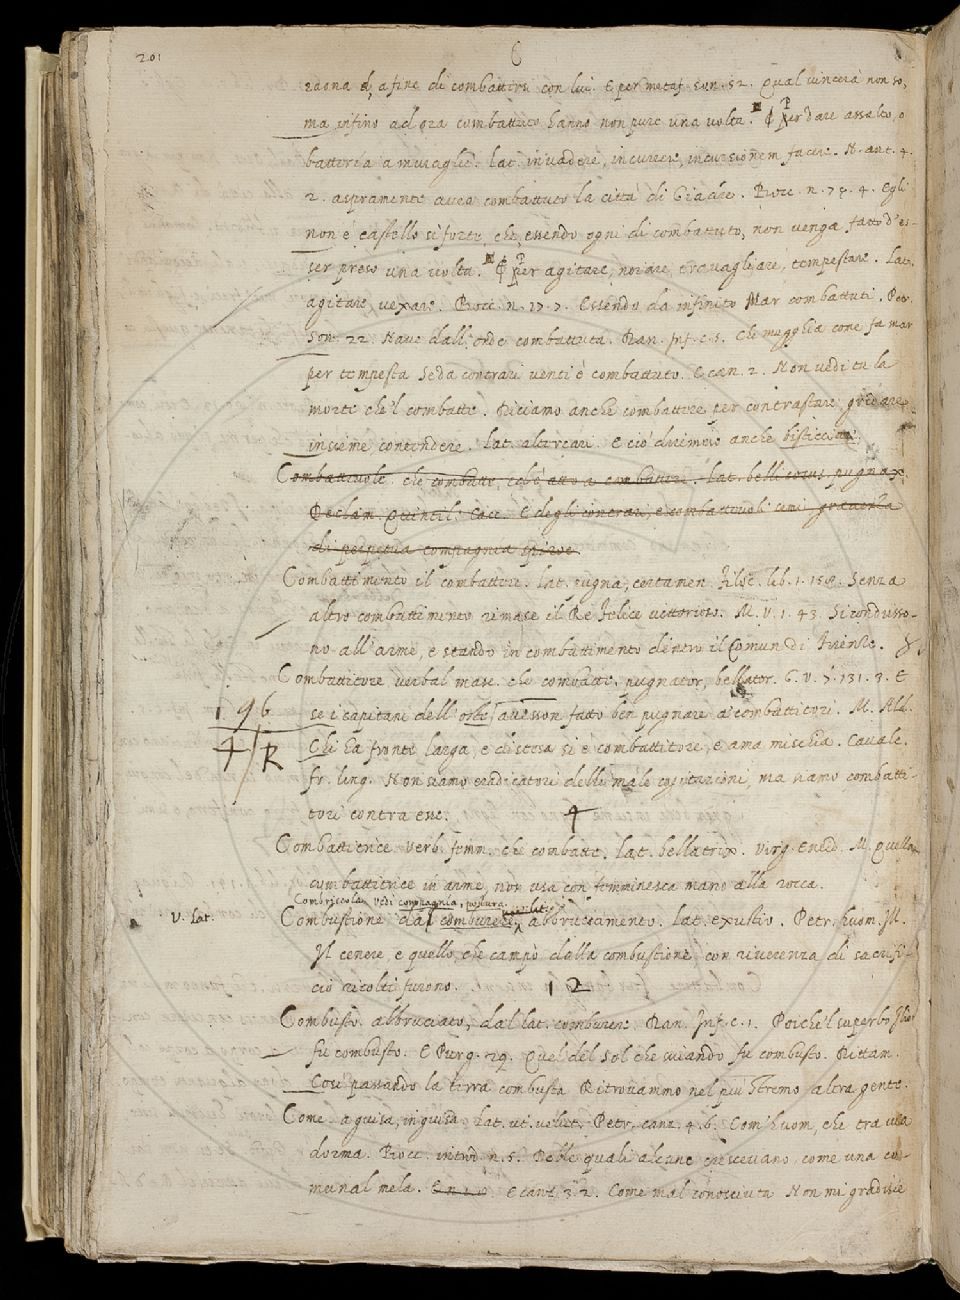 201
C
radona d, a fine di combattere con lui. E per metaf. son. 52. Qual vincerà non so,
ma infino ad ora combattuto hanno non pure una volta. ¶ Per dare assalto, o
batteria a muraglie. lat. invadere, incurrere, incursionem facere. N. ant. 4.
2. aspramente avea combattuto la città di Giadre. Bocc. n. 75. 4. Egli
non è castello sì forte, che, essendo ogni dì combattuto, non venga fatto d'es-
ser preso una volta. ¶ Per agitare, noiare, travagliare, tempestare. Lat.
agitare, vexare. Bocc. n. 17. 7. Essendo da infinito Mar combattuti. Petr.
son. 22. Nave dall' onde combattuta. Dan. Inf. c. 5. Che mugghia come fa mar
per tempesta Se da contrari venti è combattuto. E can. 2. Non vedi tu la
morte che 'l combatte. Diciamo anche combattere per contrastare gridare
insieme, contendere. Lat. altercari. E ciò diremmo anche bisticciare
Combattevole. che combatte, cioè atto a combattere. Lat. bellicosus, pugnax.
Declam. Quintil. E degli contrari, e combattevoli semi
di perpetua compagnia
Combattimento il combattere. lat. pugna, certamen. Filoc. lib. 1. 158. Senza
altro combattimento rimase il Re Felice vittorioso. M. V. 1. 43. Si condusso-
no all'arme, e stando in combattimento dentro il Comun di Firenze.
Combattitore verbal masc. che combatte, pugnator, bellator. G. V. 7. 131. 3. E
i 96
se i capitani dell'oste avesson fatto ben pugnare a' combattitori. M. Ald.
4/R
Chi ha fronte larga, e distesa si è combattitore, e ama mischia. Cavalc.
fr. ling. Non siamo eradicatori delle male cogitazioni, ma siamo combatti-
tori contra esse.
4
Combattitrice Verb. femm. che combatte. Lat. bellatrix. Virg. Eneid. M. Quella
combattitrice in arme, non usa con femminesca mano alla rocca.
Combriccola vedi compagnia,
V. Lat.
Combustione dal comburere, abbruciamento. lat. exustio. Petr. huom. Jll.
Il cenere, e quello, che campò dalla combustione con riverenza di sacrifi-
cio ricolti furono.
12
Combusto. abbruciato, dal lat. comburere. Dan. Inf. c. 1. Poichè 'l superbo Ilion
fu combusto. E Purg. 29. Quel del Sol che sviando fu combusto. Dittam.
Così passando la terra combusta Ritrovammo nel più stremo altra gente.
Come. a guisa, in guisa. Lat. ut, velut. Petr. canz. 4. 6. Com' huom, che tra via
dorma. Bocc. introd. n. 5. Delle quali alcune crescevano, come una co-
munal mela. E canz. 3. 2. Come mal conosciuta Non mi gradisce